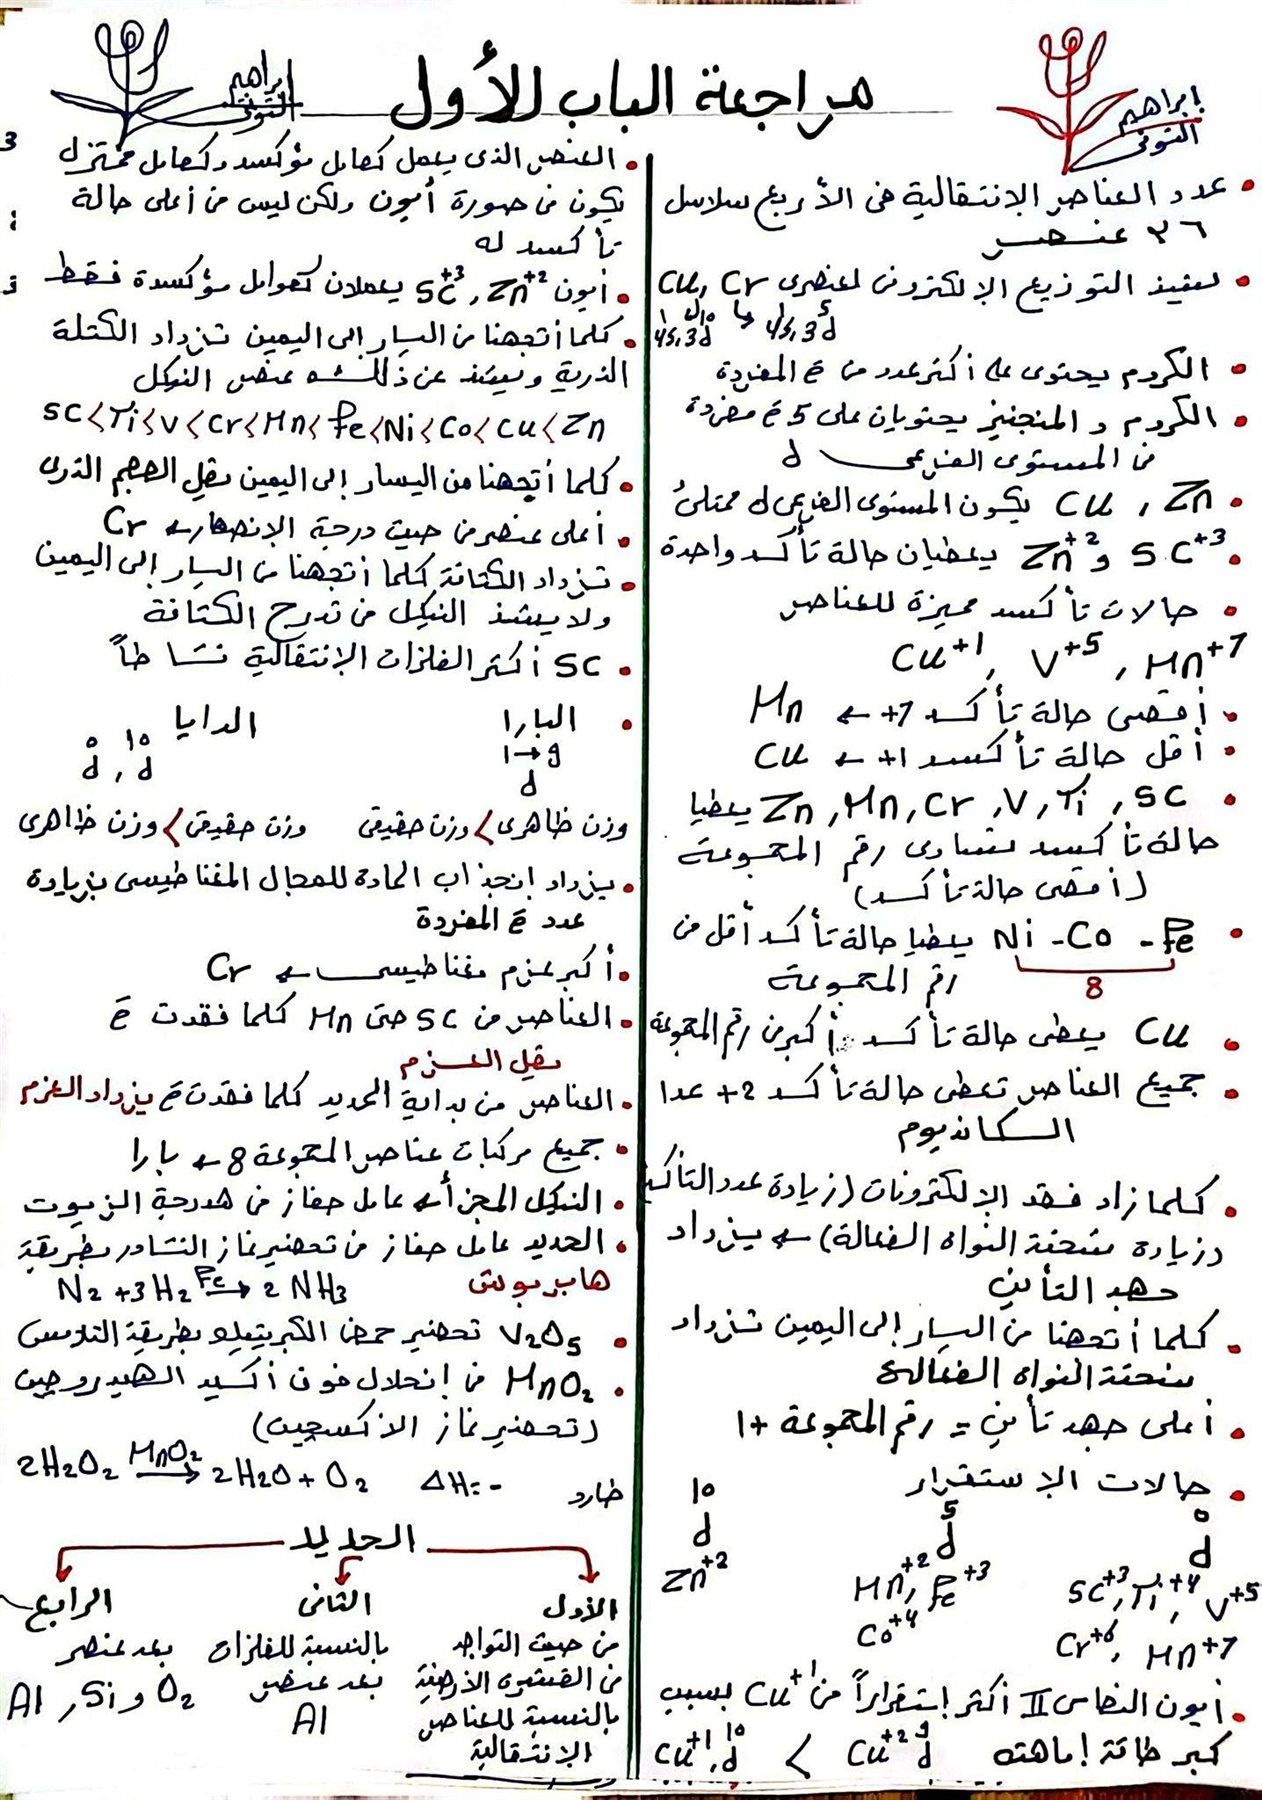 مراجعة الباب الأول
ابراهيم
التونى
ابراهيم
التونى
• عدد العناصر الإنتقالية فى الأربع سلاسل
٣٦ عنصر
• يشذ التوزيع الإلكترونى لعنصرى Cu, Cr
4s¹, 3d¹⁰ 4s¹, 3d⁵
• الكروم يحتوى على أكثر عدد من e⁻ المفردة
• الكروم و المنجنيز يحتويان على 5 e⁻ مفردة
فى المستوى الفرعى d
• Cu , Zn يكون المستوى الفرعى d ممتلئ
• Sc⁺³ و Zn⁺² يعطيان حالة تأكسد واحدة
• حالات تأكسد مميزة للعناصر
Cu⁺¹, V⁺⁵, Mn⁺⁷
• أقصى حالة تأكسد 7+ ← Mn
• أقل حالة تأكسد 1+ ← Cu
• Zn, Mn, Cr, V, Ti, Sc يعطيا
حالة تأكسد تساوى رقم المجموعة
(أقصى حالة تأكسد)
• Ni - Co - Fe يعطيا حالة تأكسد أقل من
8 رقم المجموعة
• Cu يعطى حالة تأكسد أكبر من رقم المجموعة
• جميع العناصر تعطى حالة تأكسد 2+ عدا
السكانديوم
• كلما زاد فقد الإلكترونات (زيادة عدد التأكسد
وزيادة شحنة النواة الفعالة) ← يزداد
جهد التأين
• كلما أتجهنا من اليسار إلى اليمين تزداد
شحنة النواة الفعالة
• أعلى جهد تأين = رقم المجموعة + 1
• حالات الإستقرار
d⁰ d⁵ d¹⁰
Sc⁺³, Ti⁺⁴, V⁺⁵ Mn⁺², Fe⁺³ Zn⁺²
Cr⁺⁶, Mn⁺⁷ Co⁺⁴
• أيون النحاس II أكثر إستقراراً من Cu⁺¹ بسبب
كبر طاقة إماهته Cu⁺¹, d¹⁰ < Cu⁺² d⁹
• العنصر الذى يعمل كعامل مؤكسد وكعامل مختزل
يكون فى صورة أيون ولكن ليس فى أعلى حالة
تأكسد له
• أيون Sc⁺³, Zn⁺² يعملان كعوامل مؤكسدة فقط
• كلما أتجهنا من اليسار إلى اليمين تزداد الكتلة
الذرية ويشذ عن ذلك عنصر النيكل
Sc < Ti < V < Cr < Mn < Fe < Ni < Co < Cu < Zn
• كلما أتجهنا من اليسار إلى اليمين يقل الحجم الذرى
• أعلى عنصر من حيث درجة الإنصهار ← Cr
• تزداد الكثافة كلما أتجهنا من اليسار إلى اليمين
ولا يشذ النيكل فى تدرج الكثافة
• Sc أكثر الفلزات الإنتقالية نشاطاً
• البارا الدايا
d¹→⁹ d⁰, d¹⁰
وزن ظاهرى > وزن حقيقى وزن حقيقى > وزن ظاهرى
• يزداد إنجذاب المادة للمجال المغناطيسى بزيادة
عدد e⁻ المفردة
• أكبر عزم مغناطيسى ← Cr
• العناصر من Sc حتى Mn كلما فقدت e⁻
يقل العزم
• العناصر من بداية الحديد كلما فقدت e⁻ يزداد العزم
• جميع مركبات عناصر المجموعة 8 ← بارا
• النيكل المجزأ ← عامل حفاز فى هدرجة الزيوت
• الحديد عامل حفاز فى تحضير غاز النشادر بطريقة
هابر بوش N₂ + 3H₂ Fe→ 2NH₃
• V₂O₅ تحضير حمض الكبريتيك بطريقة التلامس
• MnO₂ فى إنحلال فوق أكسيد الهيدروجين
(تحضير غاز الأكسجين)
2H₂O₂ MnO₂→ 2H₂O + O₂ ΔH = - طارد
الحديد
الأول الثانى الرابع
من حيث التواجد بالنسبة للفلزات بعد عنصر
فى القشرة الأرضية بعد عنصر Al, Si و O₂
بالنسبة للعناصر Al
الإنتقالية